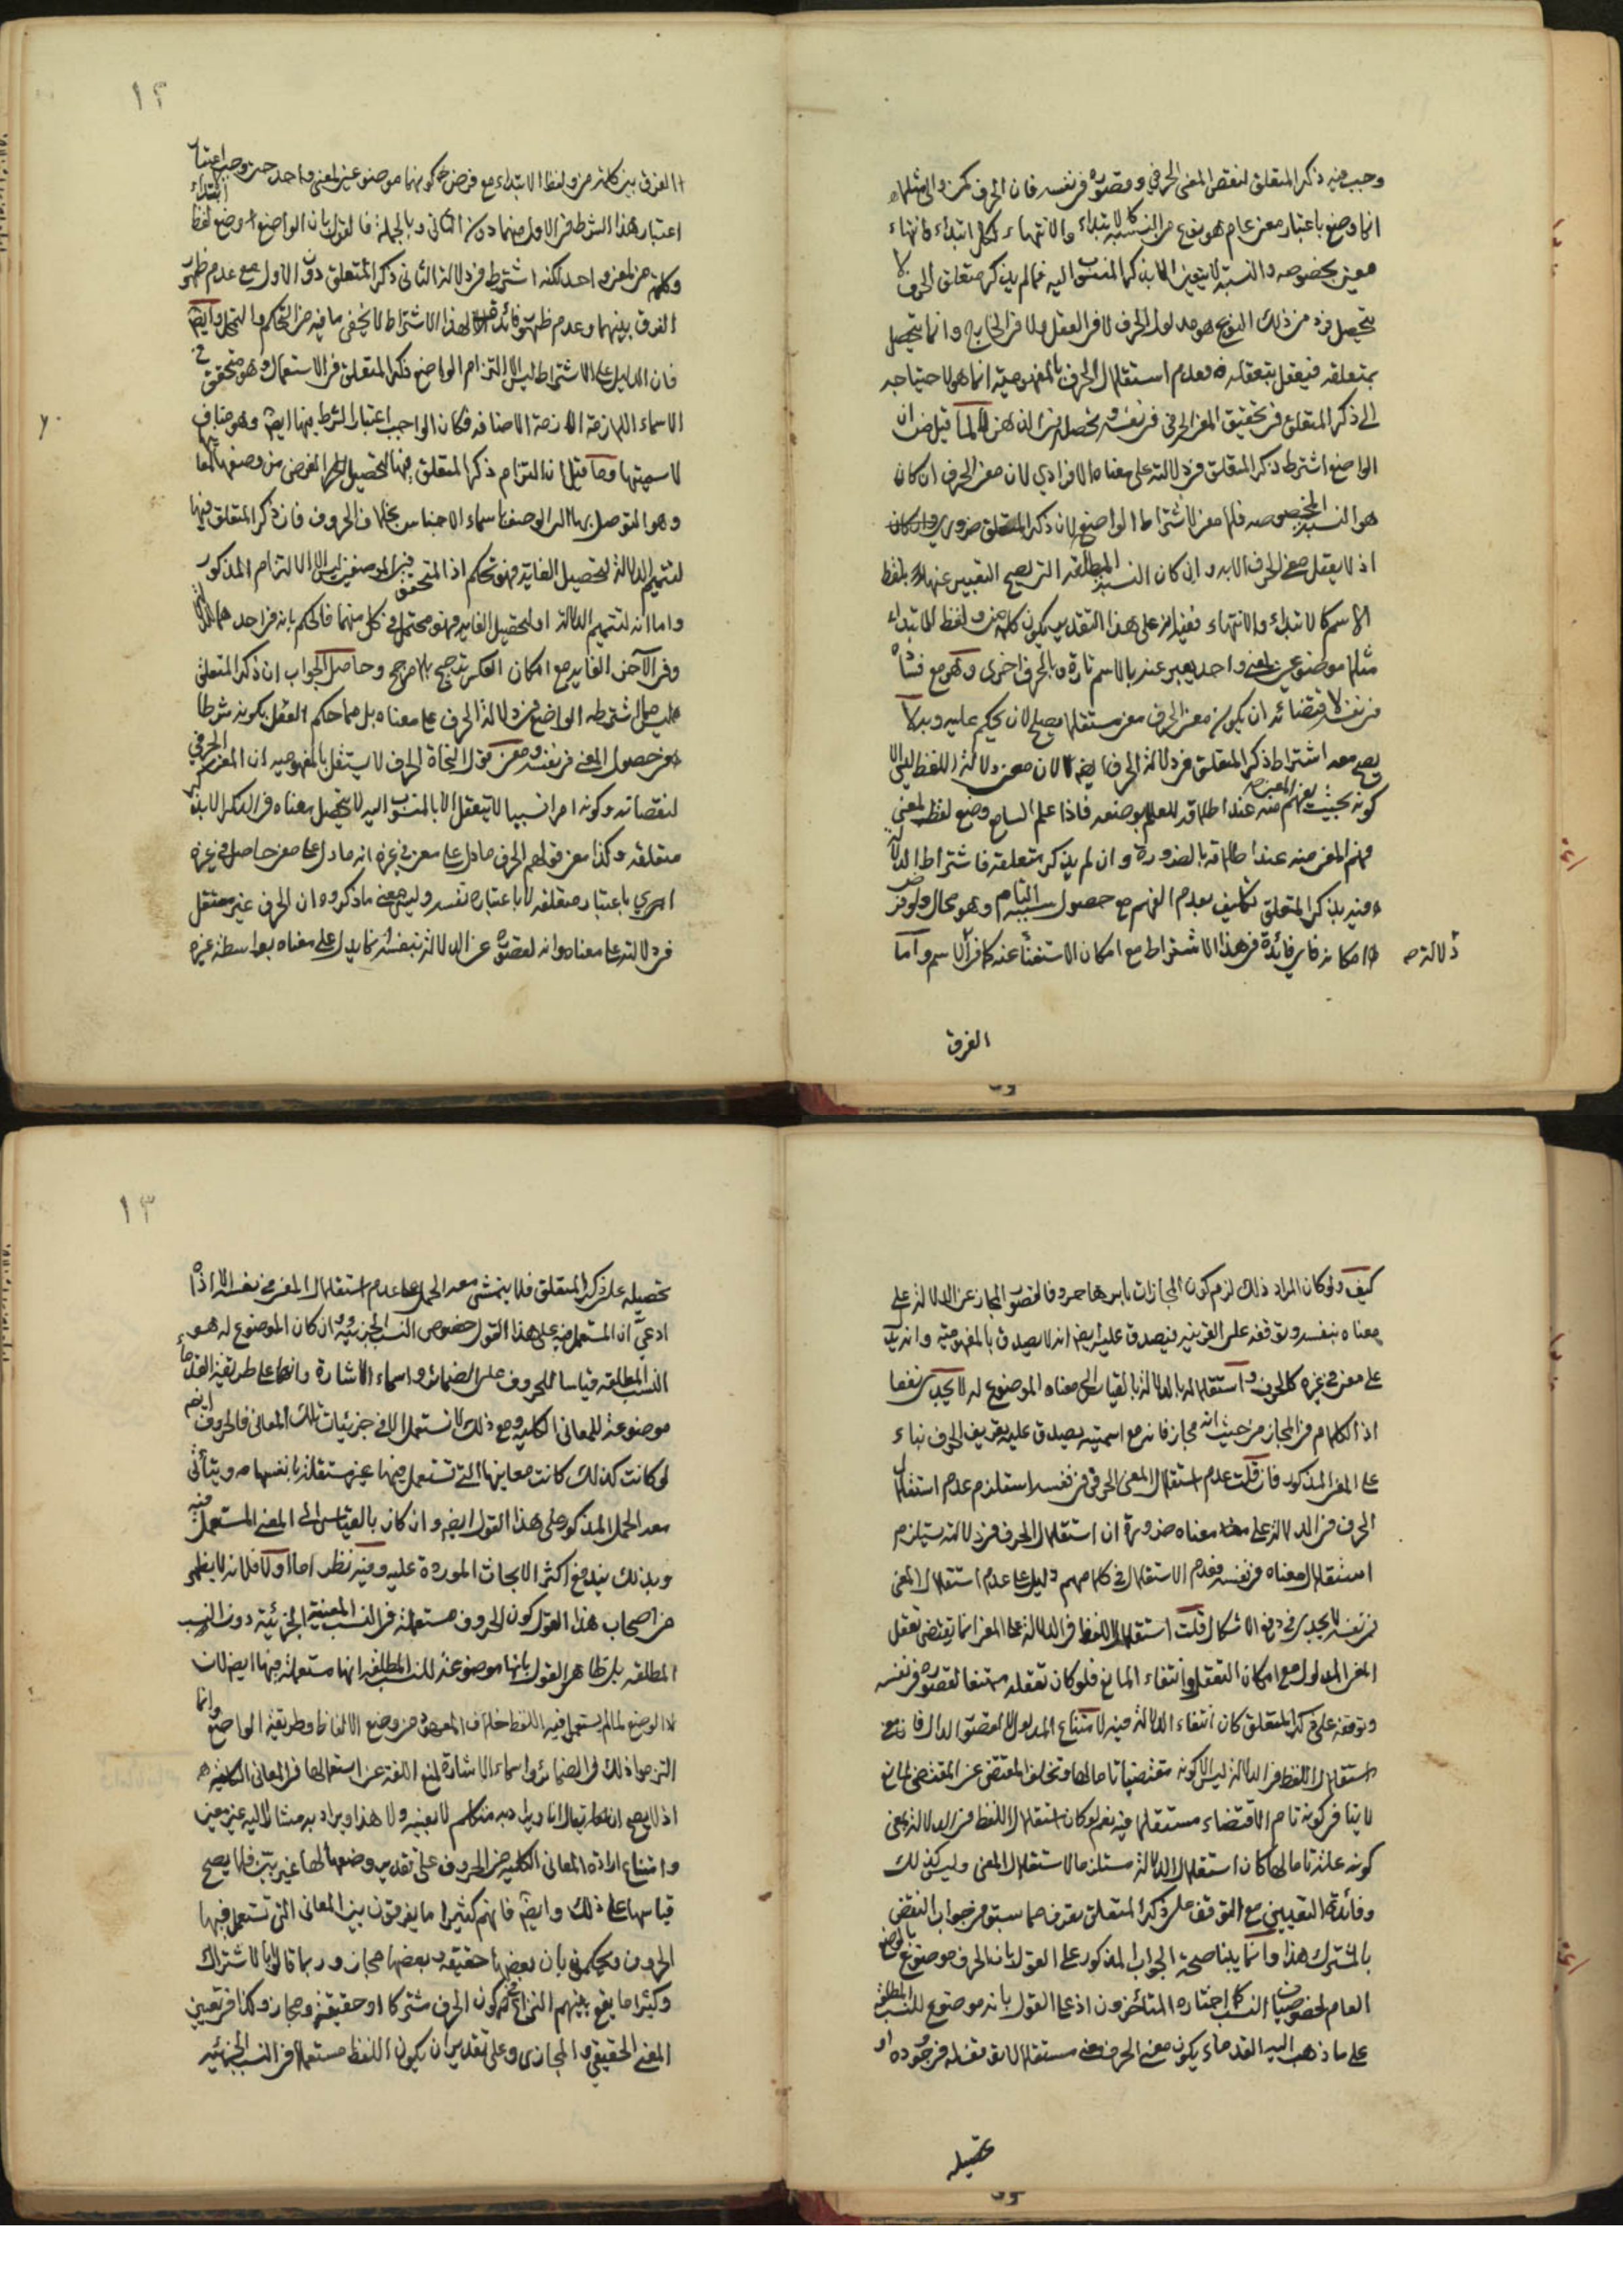 وجب فيه ذكر المتعلق لنقص المعنى الحرفي وقصوره في نفسه فان الحرف كمن والى مثلا
انما وضع باعتبار معنى عام هو نوع من النسبة كالابتداء والانتهاء لكل ابتداء وانتهاء
معين بخصوصه والنسبة لا يتعين الا بذكر المنسوب اليه فما لم يذكر متعلق الحرف لا
يتحصل فرد من ذلك النوع هو مدلول الحرف لا في العقل ولا في الخارج وانما يتحصل
بمتعلقه فيتعقل بتعقله فعدم استقلال الحرف بالمفهومية انما هو لاحتياجه
الى ذكر المتعلق في تحقيق المعنى الحرفي في نفسه وتحصله في الذهن لا لما قيل من ان
الواضع اشترط ذكر المتعلق في دلالته على معناه الافرادي لان معنى الحرف ان كان
هو النسبة المخصوصة فلا معنى لاشتراط الواضع لان ذكر المتعلق ضروري
اذ لا يعقل معنى الحرف الا به وان كان النسبة المطلقة التي يصح التعبير عنها بلفظ
الاسم كالابتداء والانتهاء على هذا التقدير يكون كلمة من ولفظ الابتداء
مثلا موضوعين لمعنى واحد يعبر عنه بالاسم تارة وبالحرف اخرى وهو مع فساده
في نفسه لاقتضائه ان يكون معنى الحرف معنى مستقلا يصلح لان يحكم عليه وبه لا
يصح معه اشتراط ذكر المتعلق في دلالة الحرف ايضا لان معنى دلالة اللفظ ليس الا
كونه بحيث يفهم المعنى منه عند اطلاقه للعلم بوضعه فاذا علم السامع وضع لفظ لمعنى
فهم المعنى منه عند اطلاقه بالضرورة وان لم يذكر متعلقه فاشتراط الدلالة
فيه بذكر المتعلق تكليف بعدم الفهم مع حصول سببه التام وهو محال ولو فرض
امكانه فاي فائدة في هذا الاشتراط مع امكان الاستغناء عنه كما في الاسم واما
دلالته
الفرق
١٢
الفرق بين كلمة من ولفظ الابتداء مع فرض كونهما موضوعين لمعنى واحد حيث وجب
اعتبار هذا الشرط في الاول منهما دون الثاني وبالجملة فالقول بان الواضع وضع لفظ ابتداء
وكلمة من لمعنى واحد لكنه اشترط في دلالة الثاني ذكر المتعلق دون الاول مع عدم ظهور
الفرق بينهما وعدم ظهور فائدة لهذا الاشتراط لا يخفى ما فيه من التحكم والتمحل وايضا
فان الدليل على الاشتراط ليس الا التزام الواضع ذكر المتعلق في الاستعمال وهو متحقق في
الاسماء اللازمة الاضافة فكان الواجب اعتبار الشرط فيها ايضا وهو مناف
لاسميتها وما قيل ان التزام ذكر المتعلق فيها لتحصيل الغرض من وضعها
وهو التوصل بها الى الوصف باسماء الاجناس بخلاف الحروف فان ذكر المتعلق فيها
لتتميم الدلالة لا لتحصيل الغاية فهو تحكم اذ المتحقق في الموضعين ليس الا الالتزام المذكور
واما انه لتتميم الدلالة او لتحصيل الغاية فهو محتمل في كل منهما فالحكم بانه في احدهما للدلالة
وفي الآخر للغاية مع امكان العكس ترجيح بلا مرجح وحاصل الجواب ان ذكر المتعلق
ليس مما اشترطه الواضع في دلالة الحرف على معناه بل مما حكم العقل بكونه شرطا
في حصول المعنى في نفسه ومعنى قول النحاة الحرف لا يستقل بالمفهومية ان المعنى الحرفي
لنقصانه وكونه امرا نسبيا لا يتعقل الا بالمنسوب اليه لا يتحصل معناه في الذكر الا بذكر
متعلقه وكذا معنى قولهم الحرف ما دل على معنى في غيره انه ما دل على معنى حاصل في غيره
اي باعتبار متعلقه لا باعتباره نفسه وليس معنى ما ذكروه ان الحرف غير مستقل
في دلالته على معناه وانه لقصوره عن الدلالة بنفسه انما يدل على معناه بواسطة غيره
كيف ولو كان المراد ذلك لزم كون المجازات باسرها حروفا لقصور المجاز عن الدلالة على
معناه بنفسه وتوقفه على القرينة فيصدق عليه ايضا انه لا يصدق بالمفهومية وانه يدل
على معنى في غيره كالحرف واستقلاله بالدلالة بالقياس الى معناه الموضوع له لا يجدي نفعا
اذ الكلام في المجاز من حيث انه مجاز فانه مع اسميته يصدق عليه تعريف الحرف بناء
على المعنى المذكور فان قلت عدم استقلال المعنى الحرفي في نفسه استلزم عدم استقلال
الحرف في الدلالة على معناه ضرورة ان استقلال الحرف في دلالته يستلزم
استقلال معناه في نفسه فعدم الاستقلال في كلامهم دليل على عدم استقلال المعنى
في نفسه لا يجدي في دفع الاشكال قلت استقلال اللفظ في الدلالة على المعنى انما يقتضي تعقل
المعنى المدلول مع امكان التعقل وانتفاء المانع فلو كان تعقله ممتنعا لقصوره في نفسه
وتوقفه على ذكر المتعلق كان انتفاء الدلالة فيه لامتناع المدلول لا لقصور الدال فان معنى
استقلال اللفظ في الدلالة ليس الا كونه مقتضيا تاما لها وتخلف المقتضى عن المقتضي لمانع
لا ينافي كونه تام الاقتضاء مستقلا فيه نعم لو كان استقلال اللفظ في الدلالة بمعنى
كونه علة تامة لها كان استقلال الدلالة مستلزما لاستقلال المعنى وليس كذلك
وفائدة التعيين مع التوقف على ذكر المتعلق تعرف مما سبق في جواب النقض
بالمشترك هذا وانما يبنا صحة الجواب المذكور على القول بان الحرف موضوع بالوضع
العام لخصوصيات النسب كما اختاره المتأخرون اذ على القول بانه موضوع للنسب المطلقة
على ما ذهب اليه القدماء يكون معنى الحرف معنى مستقلا لا يتوقف في وجوده او
تحصيله
١٣
تحصيله على ذكر المتعلق فلا يتمشى معه الحمل على عدم استقلال المعنى في نفسه الا اذا
ادعي ان المستعمل فيه على هذا القول خصوص النسب الجزئية وان كان الموضوع له هو
النسب المطلقة قياسا للحروف على الضمائر واسماء الاشارة وانها على طريقة القدماء
موضوعة للمعاني الكلية ومع ذلك لا تستعمل الا في جزئيات تلك المعاني فالحروف ايضا
لو كانت كذلك كانت معانيها التي تستعمل فيها غير مستقلة بانفسها ويتأتى
معه الحمل المذكور على هذا القول ايضا وان كان بالقياس الى المعنى المستعمل فيه
وبذلك يندفع اكثر الابحاث الموردة عليه وفيه نظر اما اولا فلانه لا يظهر
من اصحاب هذا القول كون الحروف مستعملة في النسب المعينة الجزئية دون النسب
المطلقة بل ظاهر القول بانها موضوعة للنسب المطلقة انها مستعملة فيها ايضا لان
الوضع لما لم يستعمل فيه اللفظ خلاف المعروف من وضع الالفاظ وطريقة الواضع وانما
التزموا ذلك في الضمائر واسماء الاشارة لمنع اللغة عن استعمالها في المعاني الكلية
اذ لا يصح ان يقال انا ويراد به متكلم لا بعينه ولا هذا ويراد به مشار اليه غير معين
وامتناع ارادة المعاني الكلية من الحروف على تقدير وضعها لها غير بين فلا يصح
قياسها على ذلك وايضا فانهم كثيرا ما يفرقون بين المعاني التي تستعمل فيها
الحروف ويحكمون بان بعضها حقيقة وبعضها مجاز وربما قالوا بالاشتراك
وكثيرا ما يقع بينهم النزاع في كون الحرف مشتركا او حقيقة ومجاز وكذا في تعيين
المعنى الحقيقي والمجازي وعلى تقدير ان يكون اللفظ مستعملا في النسب الجزئية